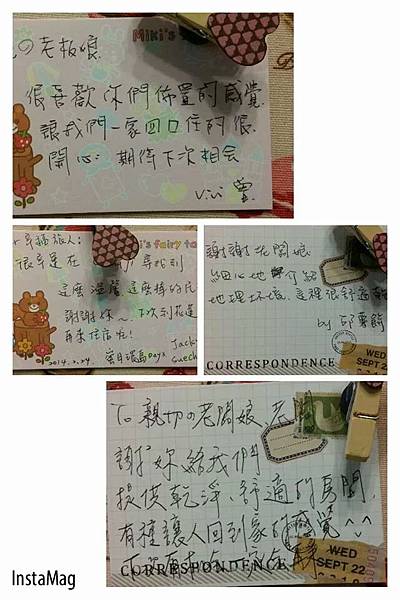 の老板娘
Miki's
很喜歡你們佈置的感覺
讓我們一家四口住的很
開心 期待下次相會
Vivi
旅人:
's fairy ta
很幸運在
尋找到
這麼溫馨、這麼棒的民
謝謝妳~ 下次到花蓮
再來住宿啦!
蜜月環島Day
Jack
2014.2.24.
謝謝老闆娘
細心地介紹
地理環境、這裡很舒適
by 邱
CORRESPONDENCE
WED
SEPT 2
To 親切の老闆娘、老
謝謝妳給我們
提供乾淨、舒適的房間,
有種讓人回到家的感覺^^
CORRESPONDENCE
WED
SEPT 22
InstaMag